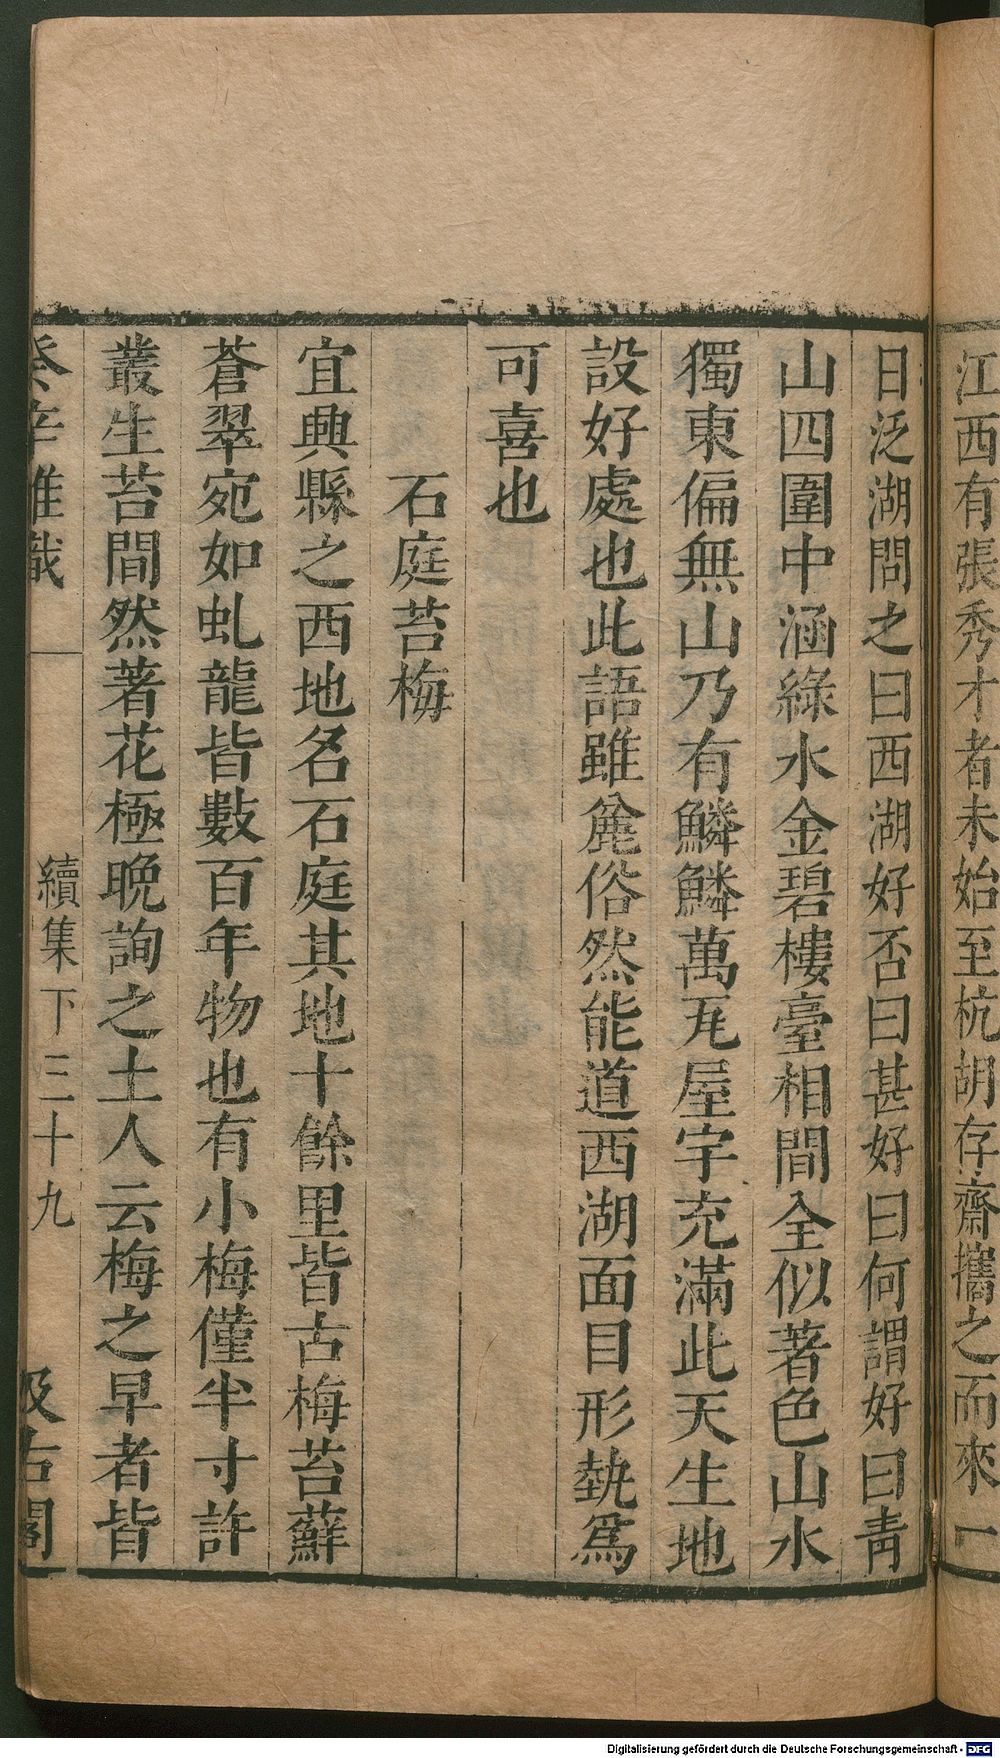 江西有張秀才者未始至杭胡存齋攜之而來一
日泛湖問之曰西湖好否曰甚好曰何謂好曰靑
山四圍中涵綠水金碧樓臺相間全似著色山水
獨東偏無山乃有鱗鱗萬瓦屋宇充滿此天生地
設好處也此語雖麄俗然能道西湖面目形埶爲
可喜也
石庭苔梅
宜興縣之西地名石庭其地十餘里皆古梅苔蘚
蒼翠宛如虬龍皆數百年物也有小梅僅半寸許
叢生苔間然著花極晩詢之土人云梅之早者皆
癸辛雜識 續集下三十九 汲古閣
Digitalisierung gefördert durch die Deutsche Forschungsgemeinschaft - DFG